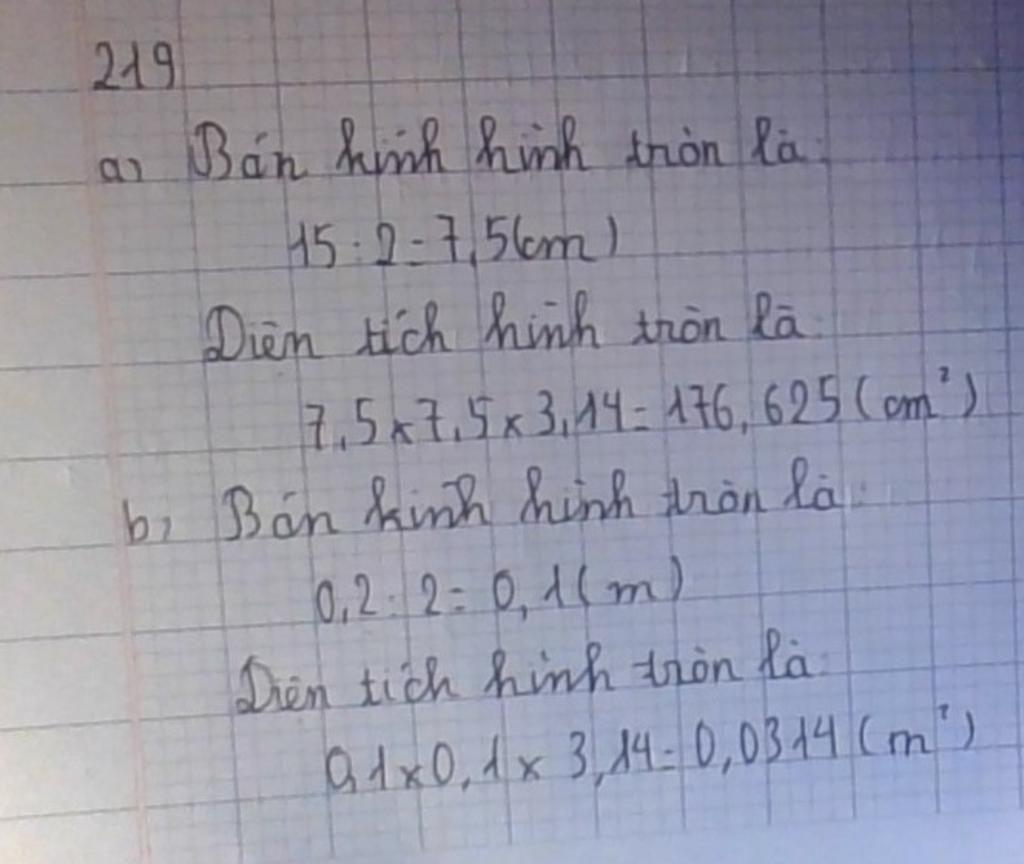 219
a) Bán kính hình tròn là:
15 : 2 = 7,5(cm)
Diện tích hình tròn là:
7,5 x 7,5 x 3,14 = 176,625 (cm²)
b) Bán kính hình tròn là:
0,2 : 2 = 0,1 (m)
Diện tích hình tròn là:
0,1 x 0,1 x 3,14 = 0,0314 (m²)